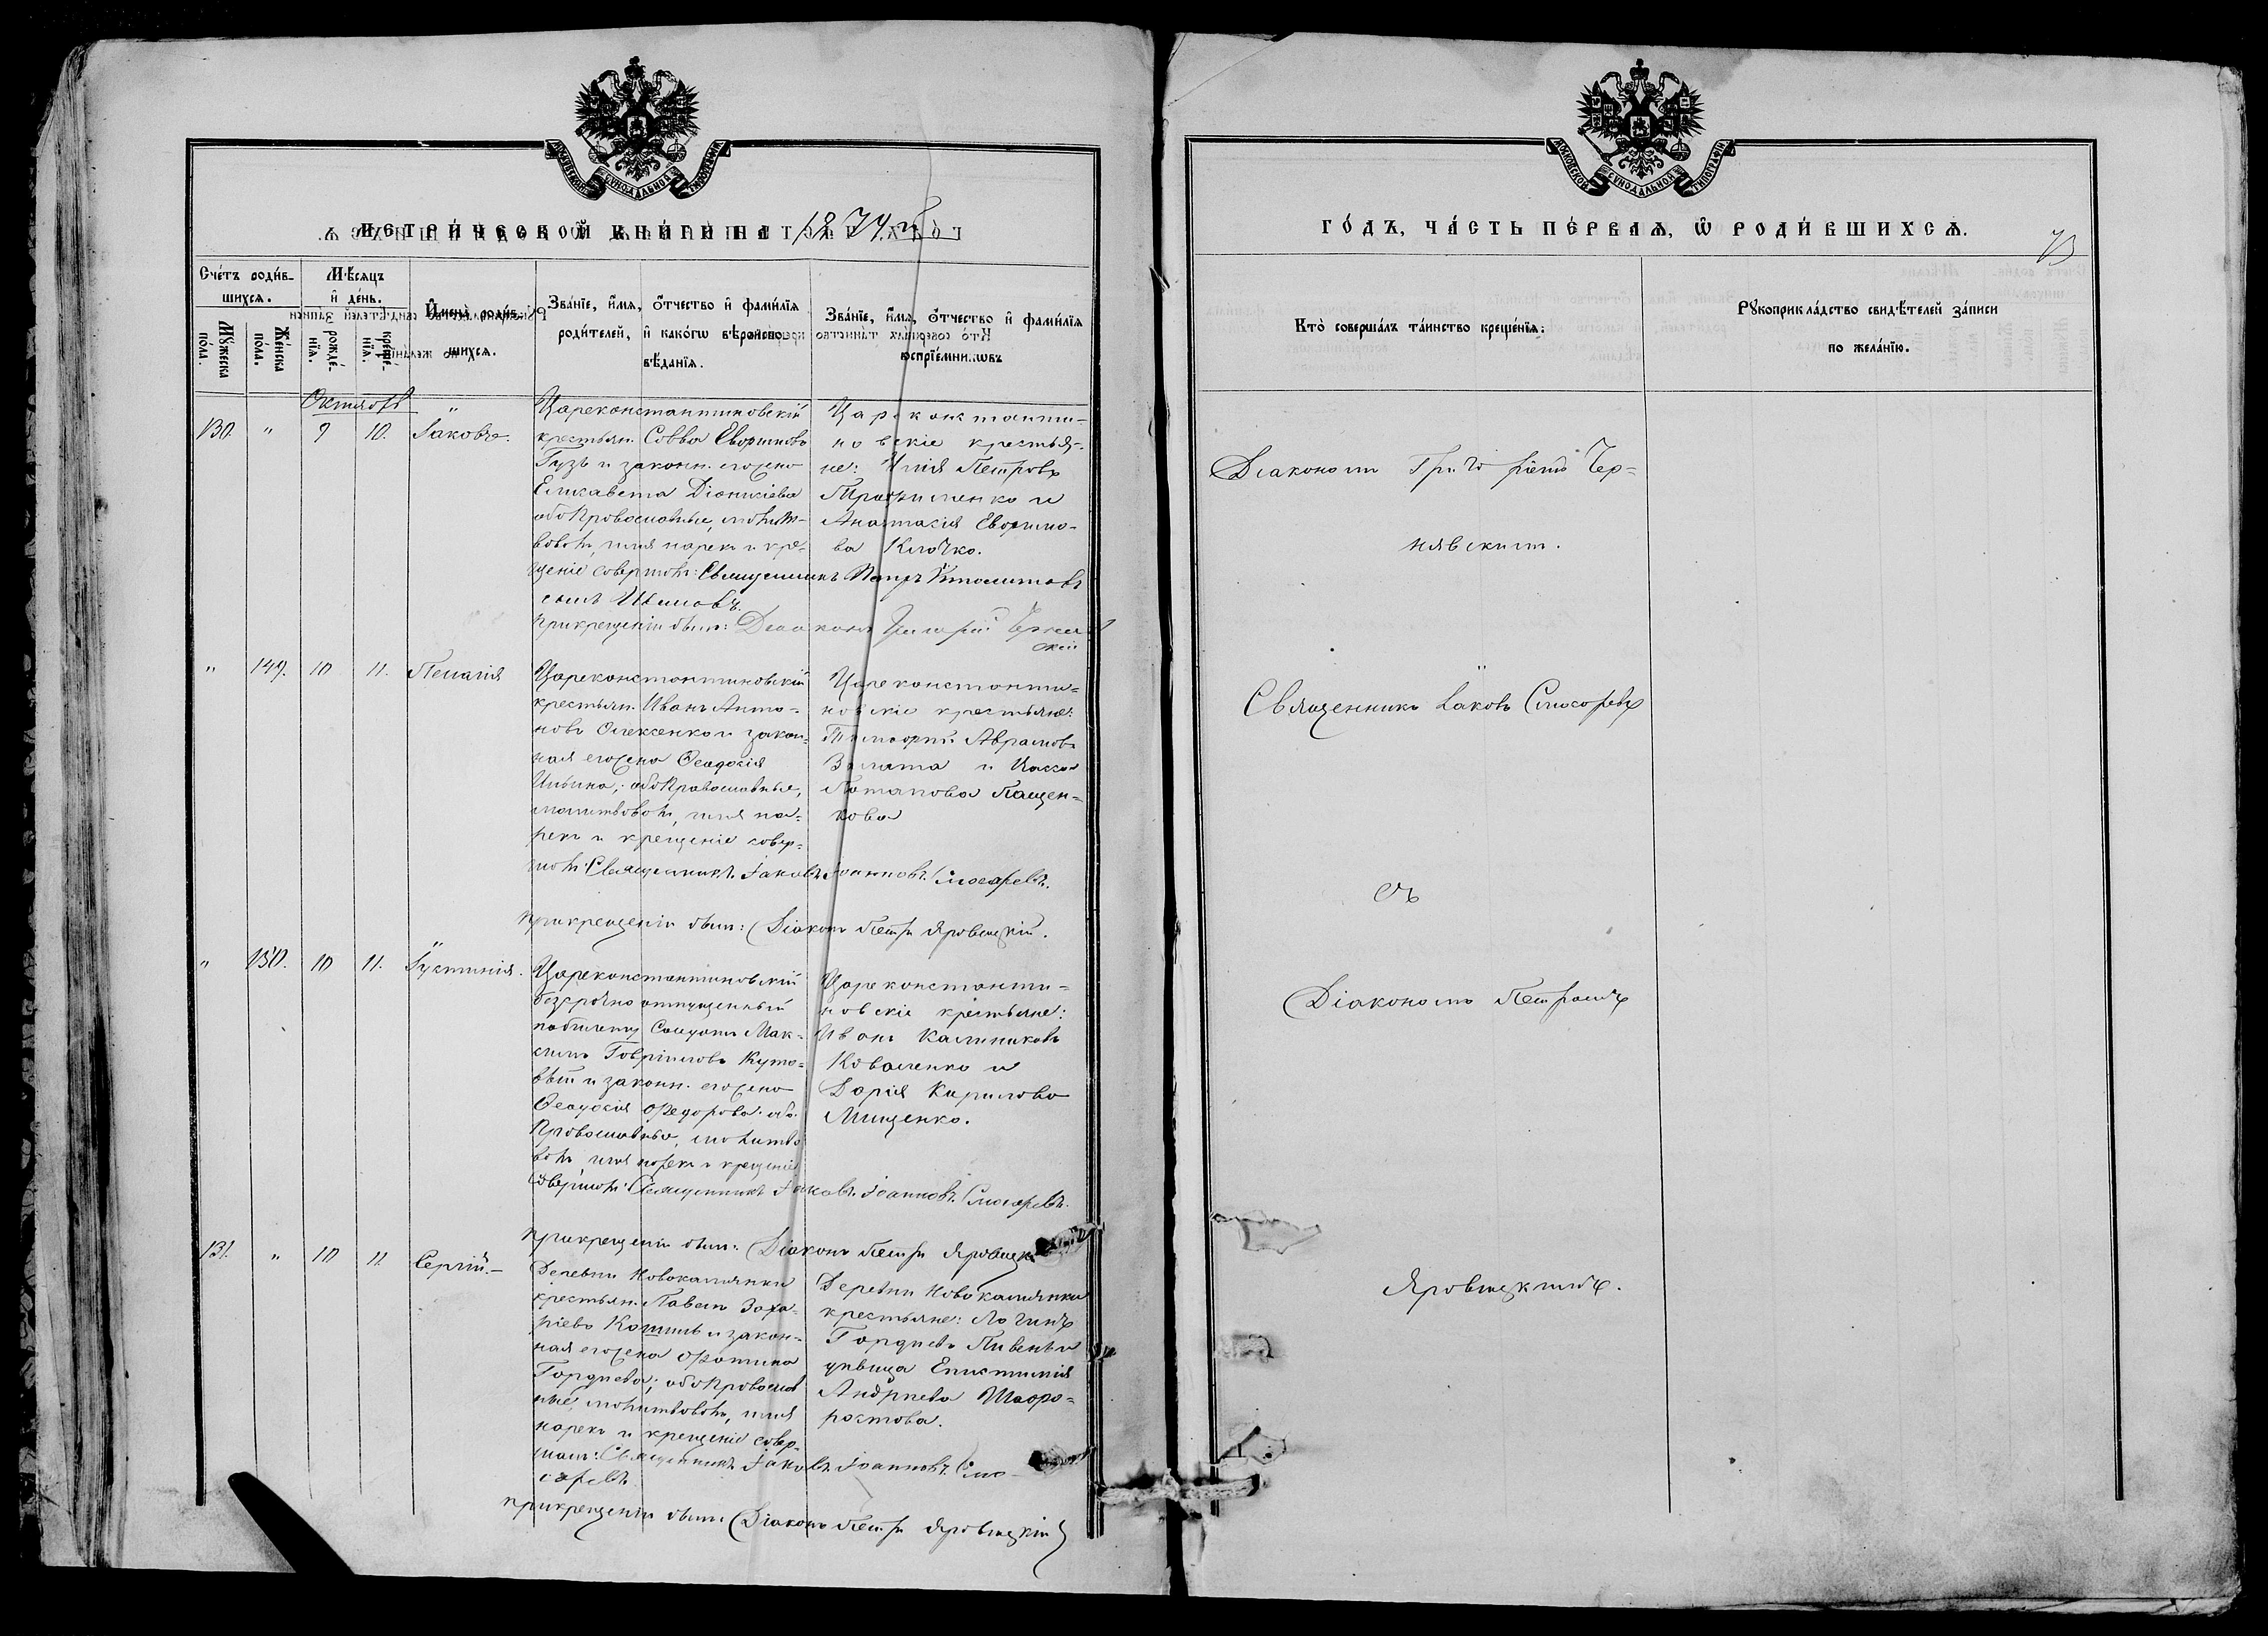 МОСКОВСКОЙ СѴНОДАЛЬНОЙ ТИПОГРАФІИ
МЕТРИ́ЧЕСКОЙ КНИ́ГИ НА 1874. г.
Сче́тъ роди́вшихсѧ.
Мꙋ́жеска по́ла.
Же́нска по́ла.
Мѣ́сѧцъ и҆ де́нь.
рожде́нїѧ.
креще́нїѧ.
И҆мена̀ роди́вшихсѧ.
Зва́нїе, и҆́мѧ, ѻ҆́тчество и҆ фами́лїѧ
роди́телей, и҆ како́гѡ вѣроисповѣ́данїѧ.
Зва́нїе, и҆́мѧ, ѻ҆́тчество и҆ фами́лїѧ
воспрїе́мникѡвъ
Октябрь
130. " 9 10. Іаковъ.
Цареконстантиновскій
крестьян. Савва Евфимовъ
Гузь и законн. его жена
Елисавета Діонисіева
оба Православные, молитв-
вовалъ, имя нарекъ и кре-
щеніе совершалъ: Священникъ Петръ
сынъ
при крещеніи былъ: Діаконъ Григорій
Цареконстанти-
новскіе крестья-
не: Илія Петровъ
Трофименко и
Анастасія Евфимо-
ва Клочко.
" 149. 10 11. Пелагія
Цареконстантиновскій
крестьян. Иванъ Анто-
новъ Олексенко и закон-
ная его жена Феодосія
Ильина; оба Православные,
молитвовалъ, имя на-
рекъ и крещеніе совер-
шалъ: Священникъ Іаковъ Іоанновъ Слюсаревъ.
при крещеніи былъ: Діаконъ Петръ Яровицкій.
Цареконстанти-
новскіе крестьяне:
Тимофей Аврамовъ
и
Потапова Пащен-
кова
" 150. 10 11. Іустинія.
Цареконстантиновскій
безсрочно отпущенный
по билету Солдатъ Мак-
симъ Гавріиловъ Куто-
вый и законн. его жена
Феодосія Федорова: оба
Православные, молитво
валъ, имя нарекъ и крещеніе
совершалъ: Священникъ Іаковъ Іоанновъ Слюсаревъ.
при крещеніи былъ: Діаконъ Петръ Яровицк
Цареконстанти-
новскіе крестьяне:
Иванъ Калиниковъ
Коваленко и
Дарія Кирилова
Мищенко.
131. " 10 11. Сергій.-
Деревни Новокамянки
крестьян. Павелъ Заха-
ріевъ Кошиль и закон-
ная его жена Фотина
Гордиева; оба Православ
ные, молитвовалъ, имя
нарекъ и крещеніе совер-
шалъ: Священникъ Іаковъ Іоанновъ Слю-
саревъ
при крещеніи былъ: Діаконъ Петръ Яровицкій
Деревни Новокамянки
крестьяне: Логинъ
Гордиевъ Пивень и
девица Епистимія
Андріева Шафо-
ростова.
МОСКОВСКОЙ СѴНОДАЛЬНОЙ ТИПОГРАФІИ
ГО́ДЪ, ЧА́СТЬ ПЕ́РВАѦ, Ѡ҆ РОДИ́ВШИХСѦ.
Кто̀ соверша́лъ та́инство креще́нїѧ:
Рꙋкоприкла́дство свидѣ́телей за́писи
по жела́нїю.
Діакономъ Григоріемъ Чер-
нявскимъ.
Священникъ Іаковъ Слюсаревъ
съ
Діакономъ Петромъ
Яровицкимъ.